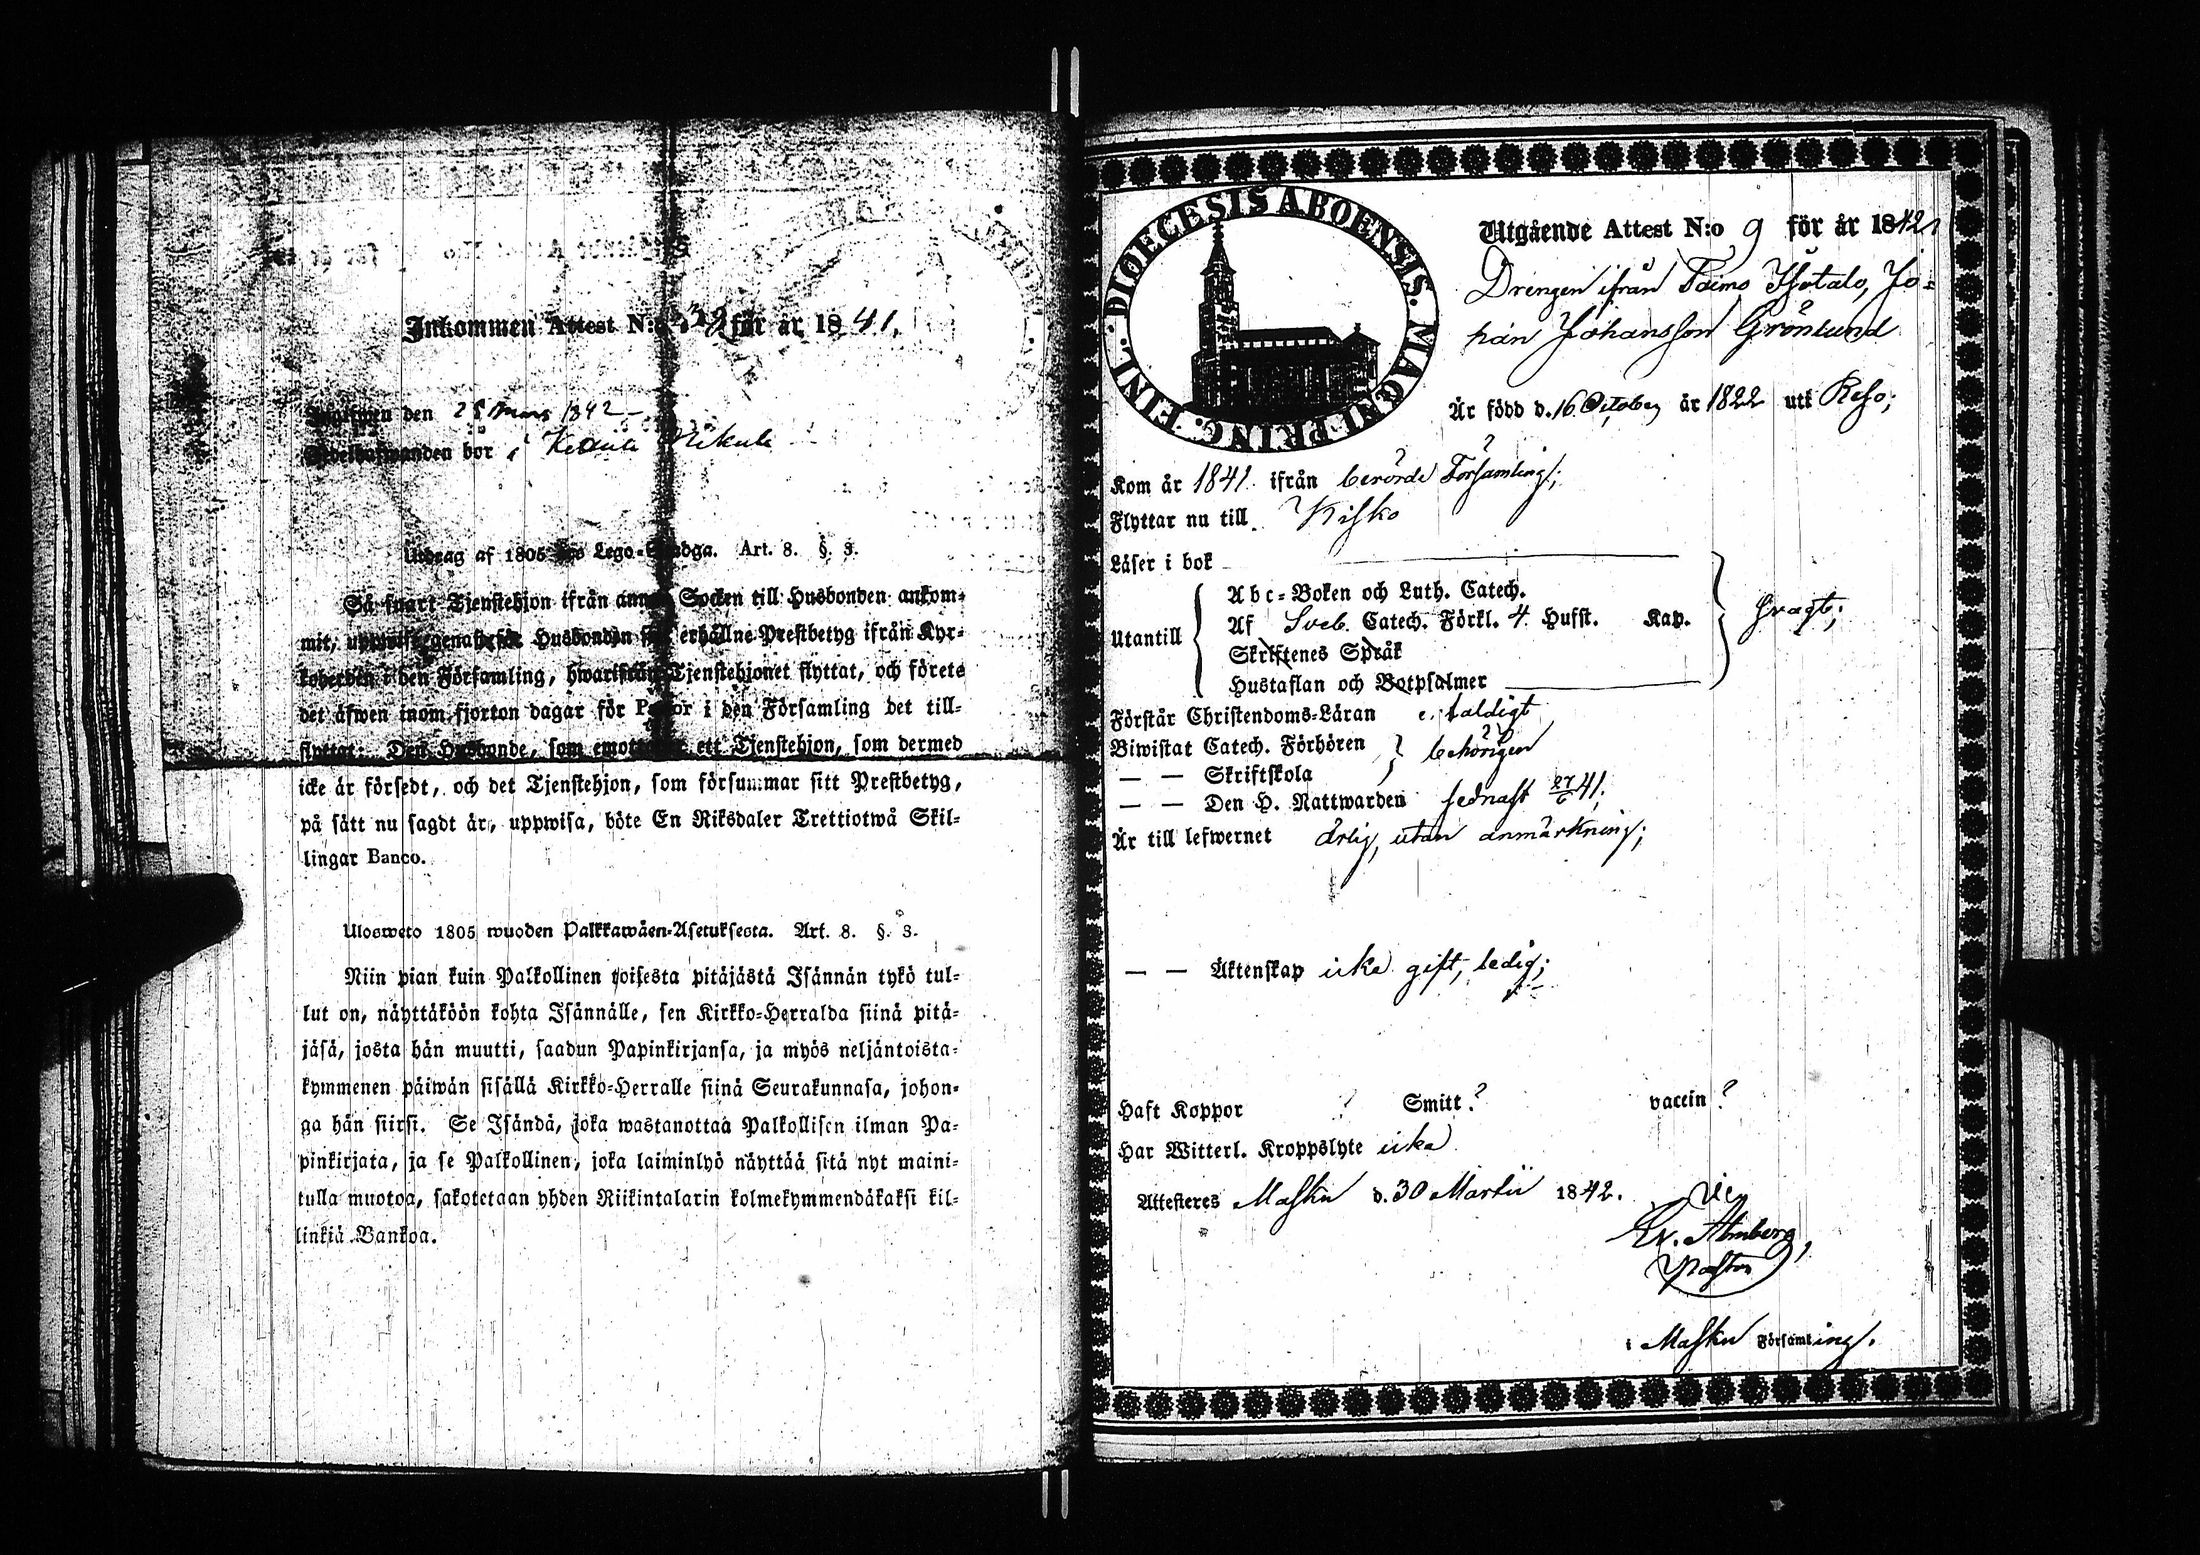 Inkommen Attest N:o för år 1841.
den 28 Mars 1842
bor i
Utdrag af 1805 års Lego-Stadga. Art. 8. §. 3.
Så snart Tjenstehjon ifrån annan Socken till Husbonden ankom-
mit, uppwise genast för Husbonden sitt erhållne Prestbetyg ifrån Kyr-
koherden i den Församling, hwarifrån Tjenstehjonet flyttat, och förete
det äfwen inom fjorton dagar för Pastor i den Församling det till-
flyttat. Den Husbonde, som emottager ett Tjenstehjon, som dermed
icke är försedt, och det Tjenstehjon, som försummar sitt Prestbetyg,
på sätt nu sagdt är, uppwisa, böte En Riksdaler Trettiotwå Skil-
lingar Banco.
Ulosweto 1805 wuoden Palkkawäen-Asetuksesta. Art. 8. §. 3.
Niin pian kuin Palkollinen toisesta pitäjästä Isännän tykö tul-
lut on, näyttäköön kohta Isännälle, sen Kirkko-Herralda siinä pitä-
jäsä, josta hän muutti, saadun Papinkirjansa, ja myös neljäntoista-
kymmenen päiwän sisällä Kirkko-Herralle siinä Seurakunnasa, johon-
ga hän siirsi. Se Isändä, joka wastanottaa Palkollisen ilman Pa-
pinkirjata, ja se Palkollinen, joka laiminlyö näyttää sitä nyt maini-
tulla muotoa, sakotetaan yhden Riikintalarin kolmekymmendäkaksi kil-
linkiä Bankoa.
DIOECESIS ABOENSIS. MAGNI PRINC. FINL.
Utgående Attest N:o 9 för år 1842,
Drengen ifrån Taimo Isotalo, Jo-
han Johansson Grönlund
Är född d. 16 October år 1822 uti Reso;
Kom år 1841 ifrån berörde Församling;
Flyttar nu till Kisko
Läser i bok
Utantill
Abc-Boken och Luth. Catech.
Af Sveb. Catech. Förkl. 4 Hufst. Kap.
Skriftenes Språk
Hustaflan och Botpsalmer
svagt;
Förstår Christendoms-Läran enfaldigt
Biwistat Catech. Förhören
behörigen
— — Skriftskola
— — Den H. Nattwarden sednast 27/6 41;
Är till lefwernet ärlig, utan anmärkning;
— — Äktenskap icke gift, ledig;
Haft Koppor ? Smitt. ? vaccin ?
Har Witterl. Kroppslyte icke
Attesteres Masku d. 30 Martii 1842.
Almberg,
Pastor
i Masku Församling.